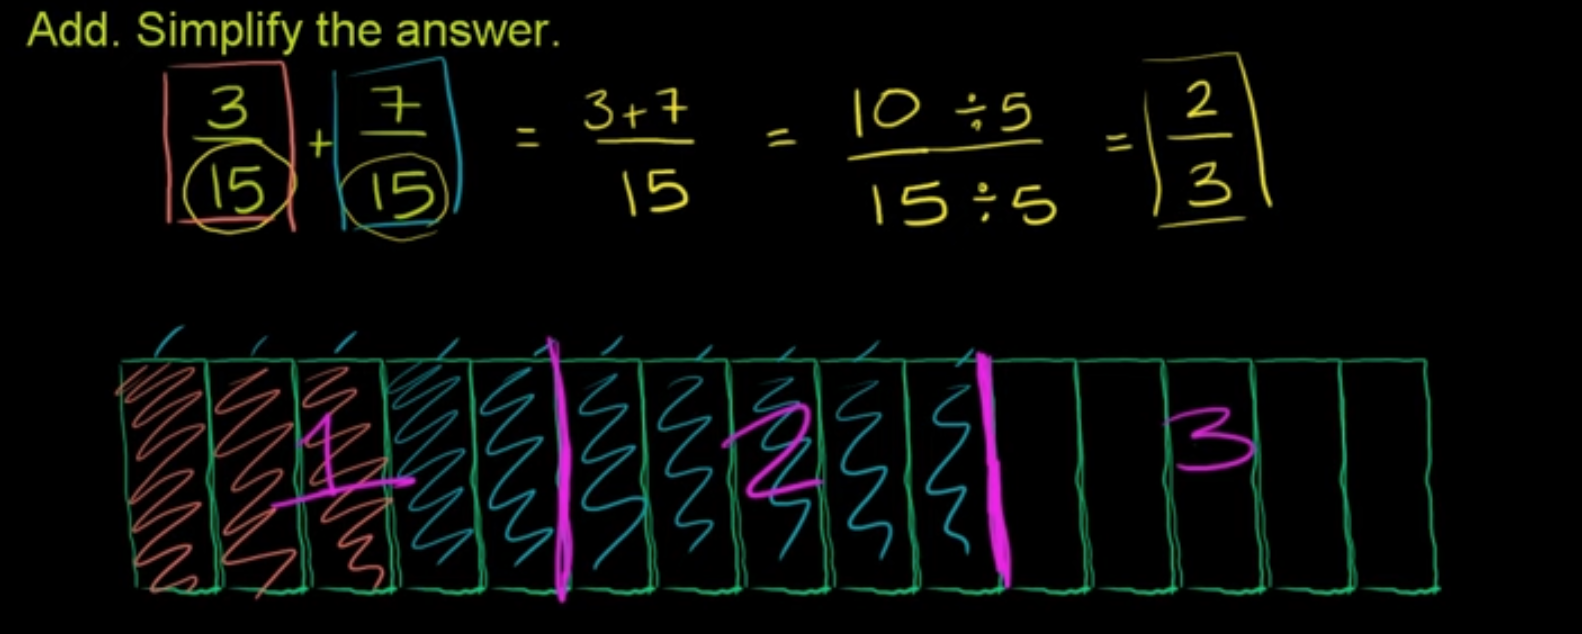 Add. Simplify the answer.
3/15 + 7/15 = 3+7/15 = 10 ÷5/15 ÷5 = 2/3
1 2 3